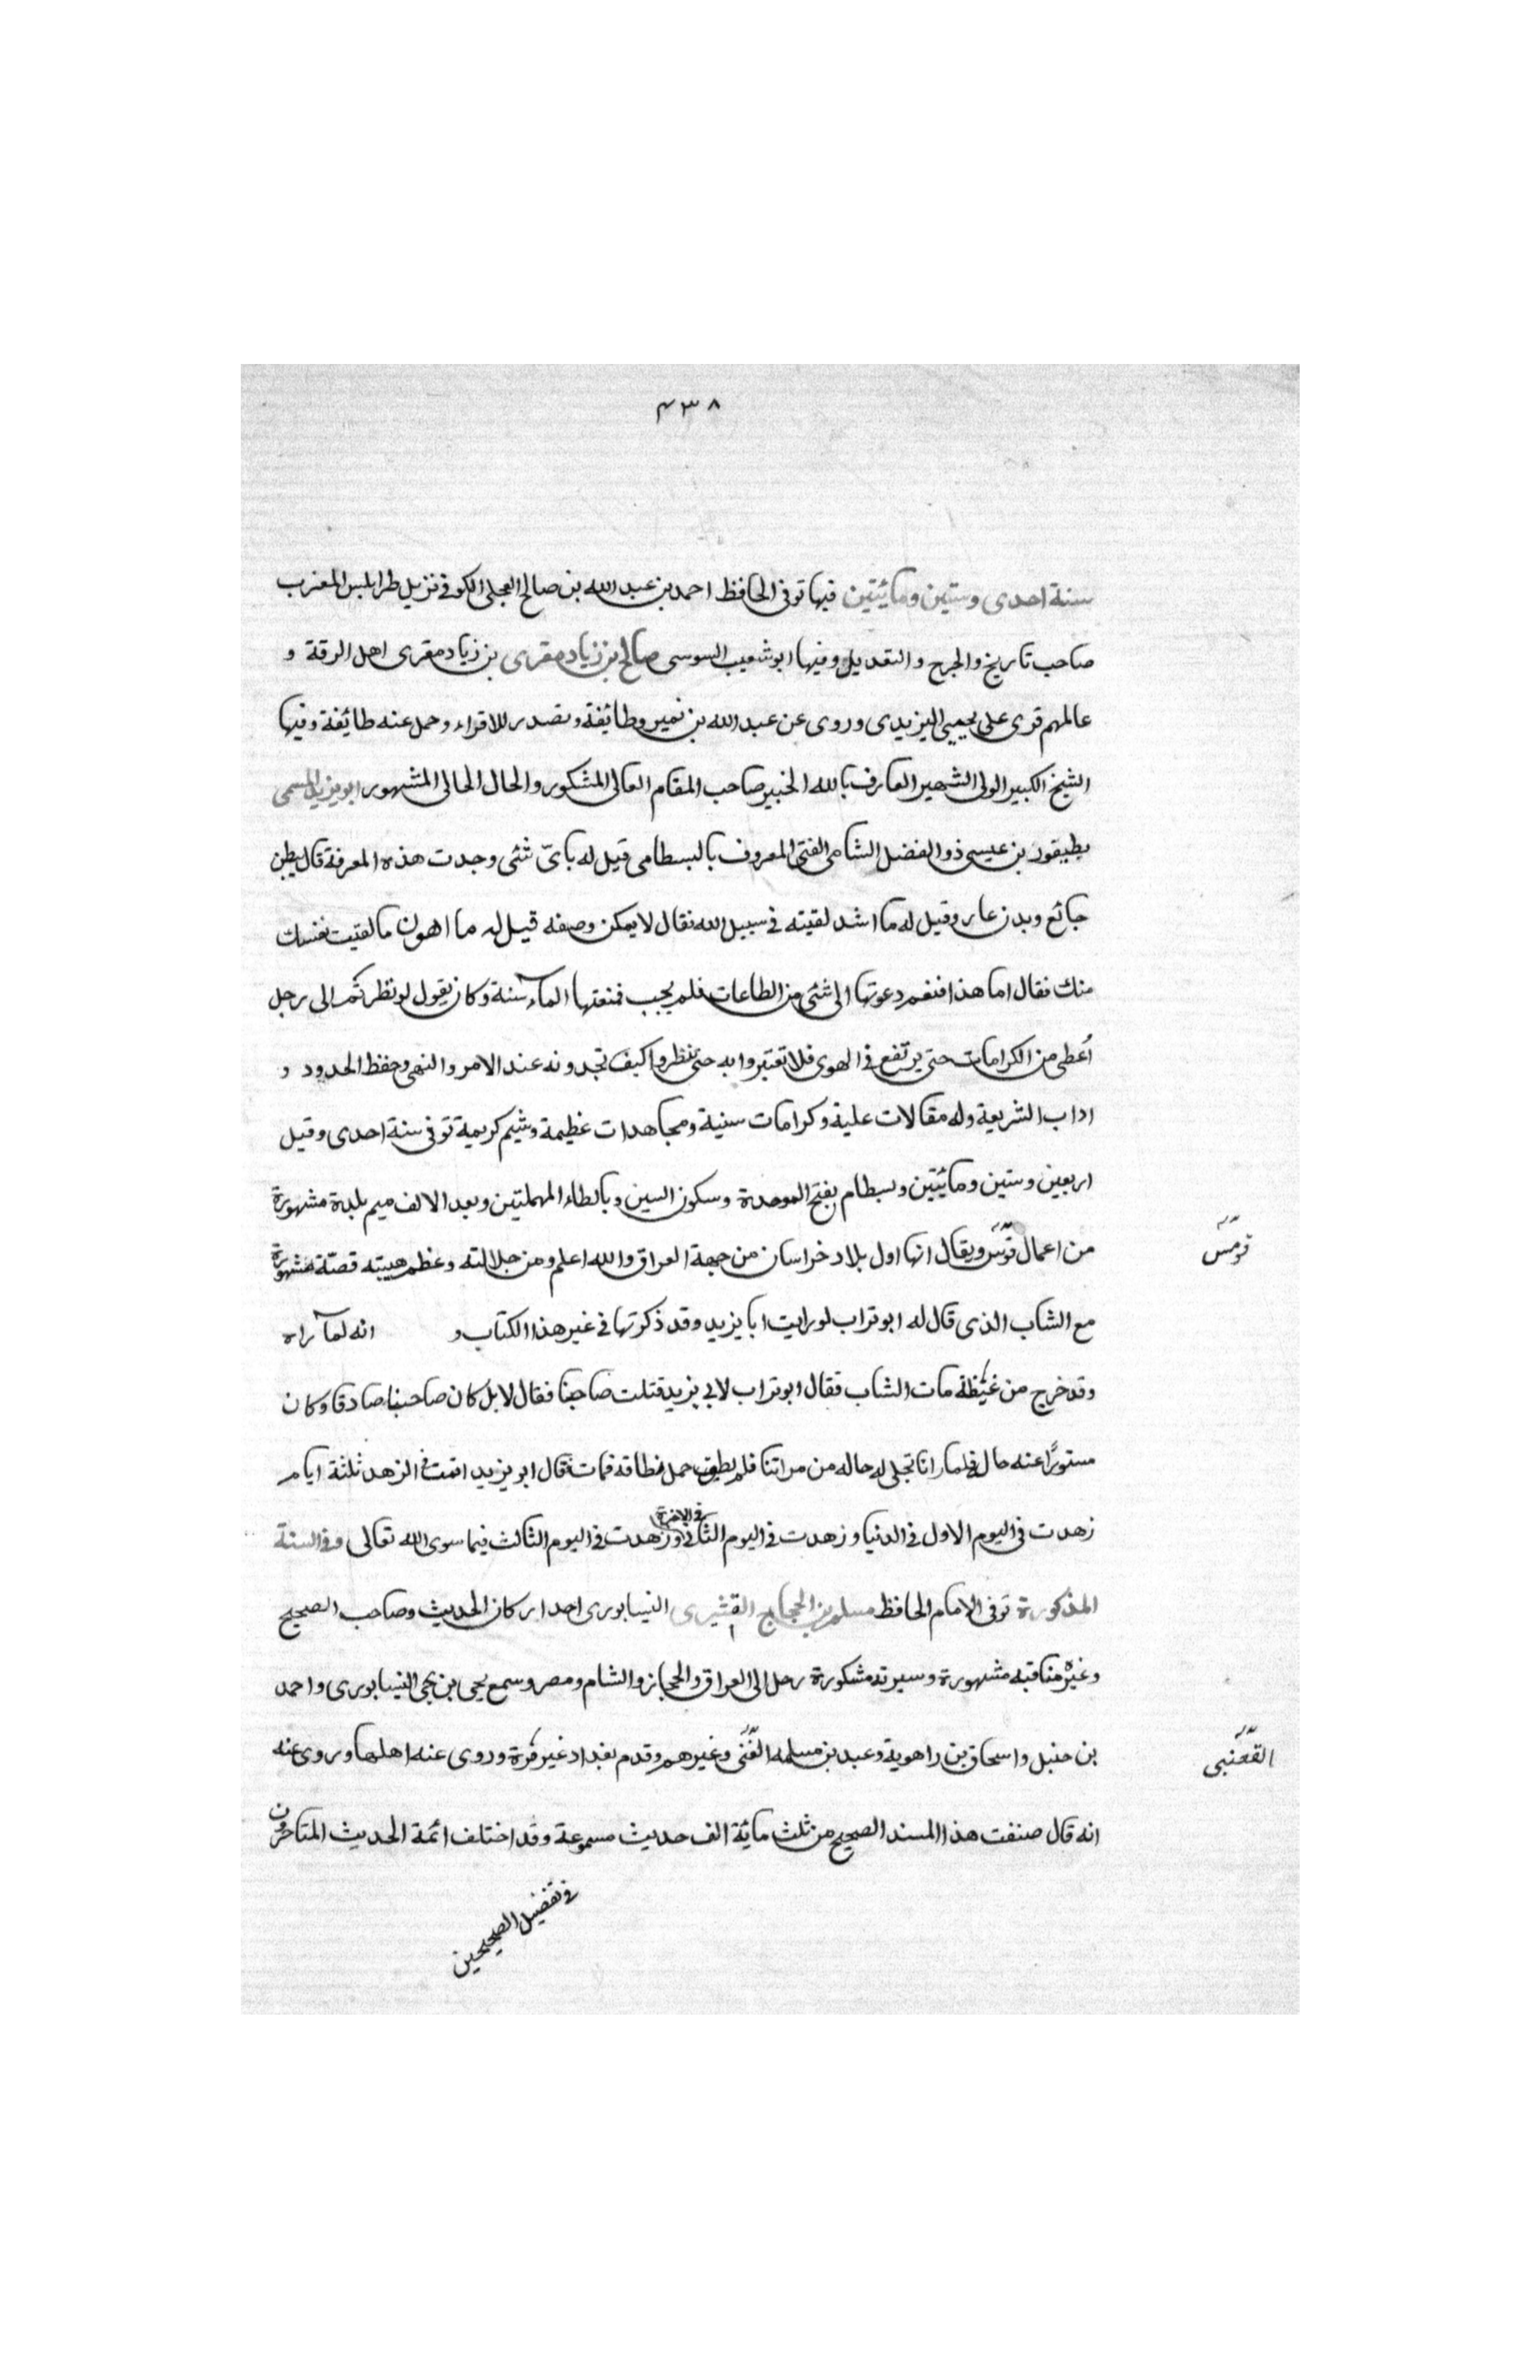 ٤٣٨
سنة احدى وستين ومائيتين فيها توفى الحافظ احمد بن عبد الله بن صالح العجلى الكوفى نزيل طرابلس المغرب
صاحب تاريخ والجرح والتعديل وفيها ابو شعيب السوسى صالح بن زياد مقرى بن زياد مقرى اهل الرقة و
عالمهم قرى على يحيى اليزيدى وروى عن عبد الله بن نمير وطائفة وتصدر للاقراء وحمل عنه طائفة وفيها
الشيخ الكبير الولى الشهير العارف بالله الخبير صاحب المقام العالى المشكور والحال الحالى المشهور ابو يزيد المسمى
بطيقور بن عيسى ذو الفضل الشامى الفتى المعروف بالبسطامى قيل له باىّ شئى وجدت هذه المعرفة قال ببطن
جائع وبدن عار وقيل له ما اشد لقيته فى سبيل الله فقال لا يمكن وصفه قيل له ما اهون ما لقيت نفسك
منك فقال اما هذا فنعم دعوتها الى شئى من الطاعات فلم يجب فمنعتها الماء سنة وكان يقول لو نظرتم الى رجل
اُعطى من الكرامات حتى يرتفع فى الهوى فلا تغتروا به حتى تنظروا كيف تجدونه عند الامر والنهى وحفظ الحدود و
اداب الشريعة وله مقالات علية وكرامات سنية ومجاهدات عظيمة وشيم كريمة توفى سنة احدى وقيل
اربعين وستين ومائيتين وبسطام بفتح الموحدة وسكون السين وبالطاء المهملتين وبعد الالف ميم بلدة مشهورة
من اعمال قومس ويقال انها اول بلاد خراسان من جهة العراق والله اعلم ومن جلالته وعظم هيبته قصّة مشهورة
قومس
مع الشاب الذى قال له ابو تراب لو رايت ابا يزيد وقد ذكرتها فى غير هذا الكتاب و انه لما راه
وقد خرج من غيظة مات الشاب فقال ابو تراب لابى يزيد قتلت صاحبنا فقال لا بل كان صاحبنا صادقا وكان
مستورًا عنه حاله فلما رانا تجلى له حاله من مراتنا فلم يطق حمل فطاقه فمات قال ابو يزيد اقمت فى الزهد ثلثة ايام
زهدت فى اليوم الاول فى الدنيا وزهدت فى اليوم الثانى فى الاخرة وزهدت فى اليوم الثالث فيما سوى الله تعالى وفى السنة
المذكورة توفى الامام الحافظ مسلم بن الحجاج القشيرى النيسابورى احد اركان الحديث وصاحب الصحيح
وغيره مناقبه مشهورة وسيرته مشكورة رحل الى العراق والحجاز والشام ومصر وسمع يحيى بن يحيى النيسابورى واحمد
بن حنبل واسحاق بن راهوية وعبد بن مسلمه وغيرهم وقدم بغداد غير مرة وروى عنه اهلها وروى عنه
القعنبى
انه قال صنفت هذا المسند الصحيح من ثلث مائة الف حديث مسموعة وقد اختلف ائمة الحديث المتاخرون
فى تفضيل الصحيحين